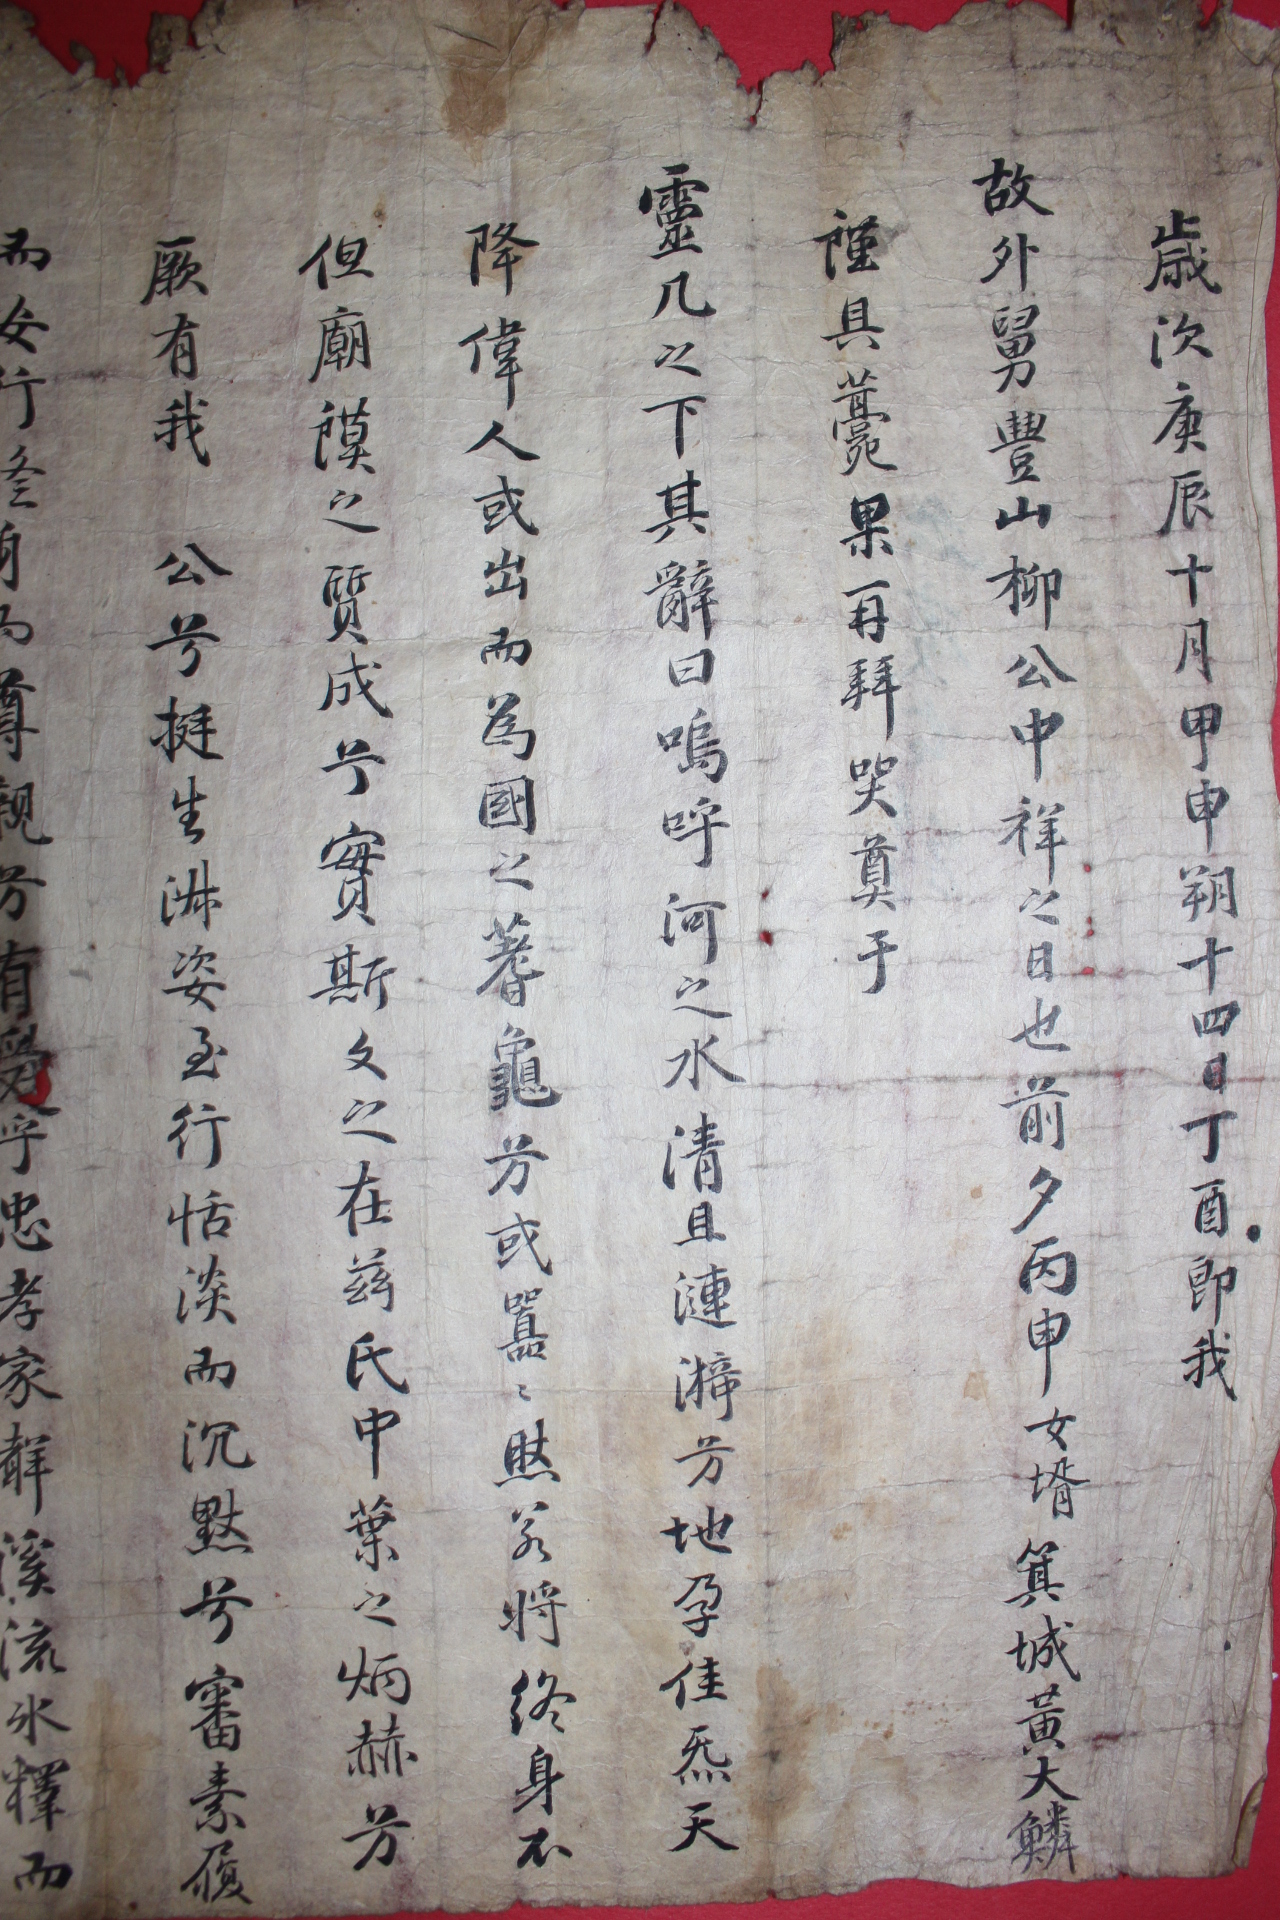 歲次庚辰十月甲申朔十四日丁酉即我
故外舅豐山柳公中祥之日也前夕丙申女壻箕城黃大鱗
謹具薧果再拜哭奠于
靈几之下其辭曰嗚呼河之水清且漣漪兮地孕佳炁天
降偉人或出而為國之蓍龜兮或囂〻然若將終身不
但廟謨之質成兮實斯文之在茲氏中葉之炳赫兮
厥有我 公兮挺生淋姿至行恬淡而沉默兮審素履
而女行 尊親兮有受乎忠孝家聲溪流氷釋而